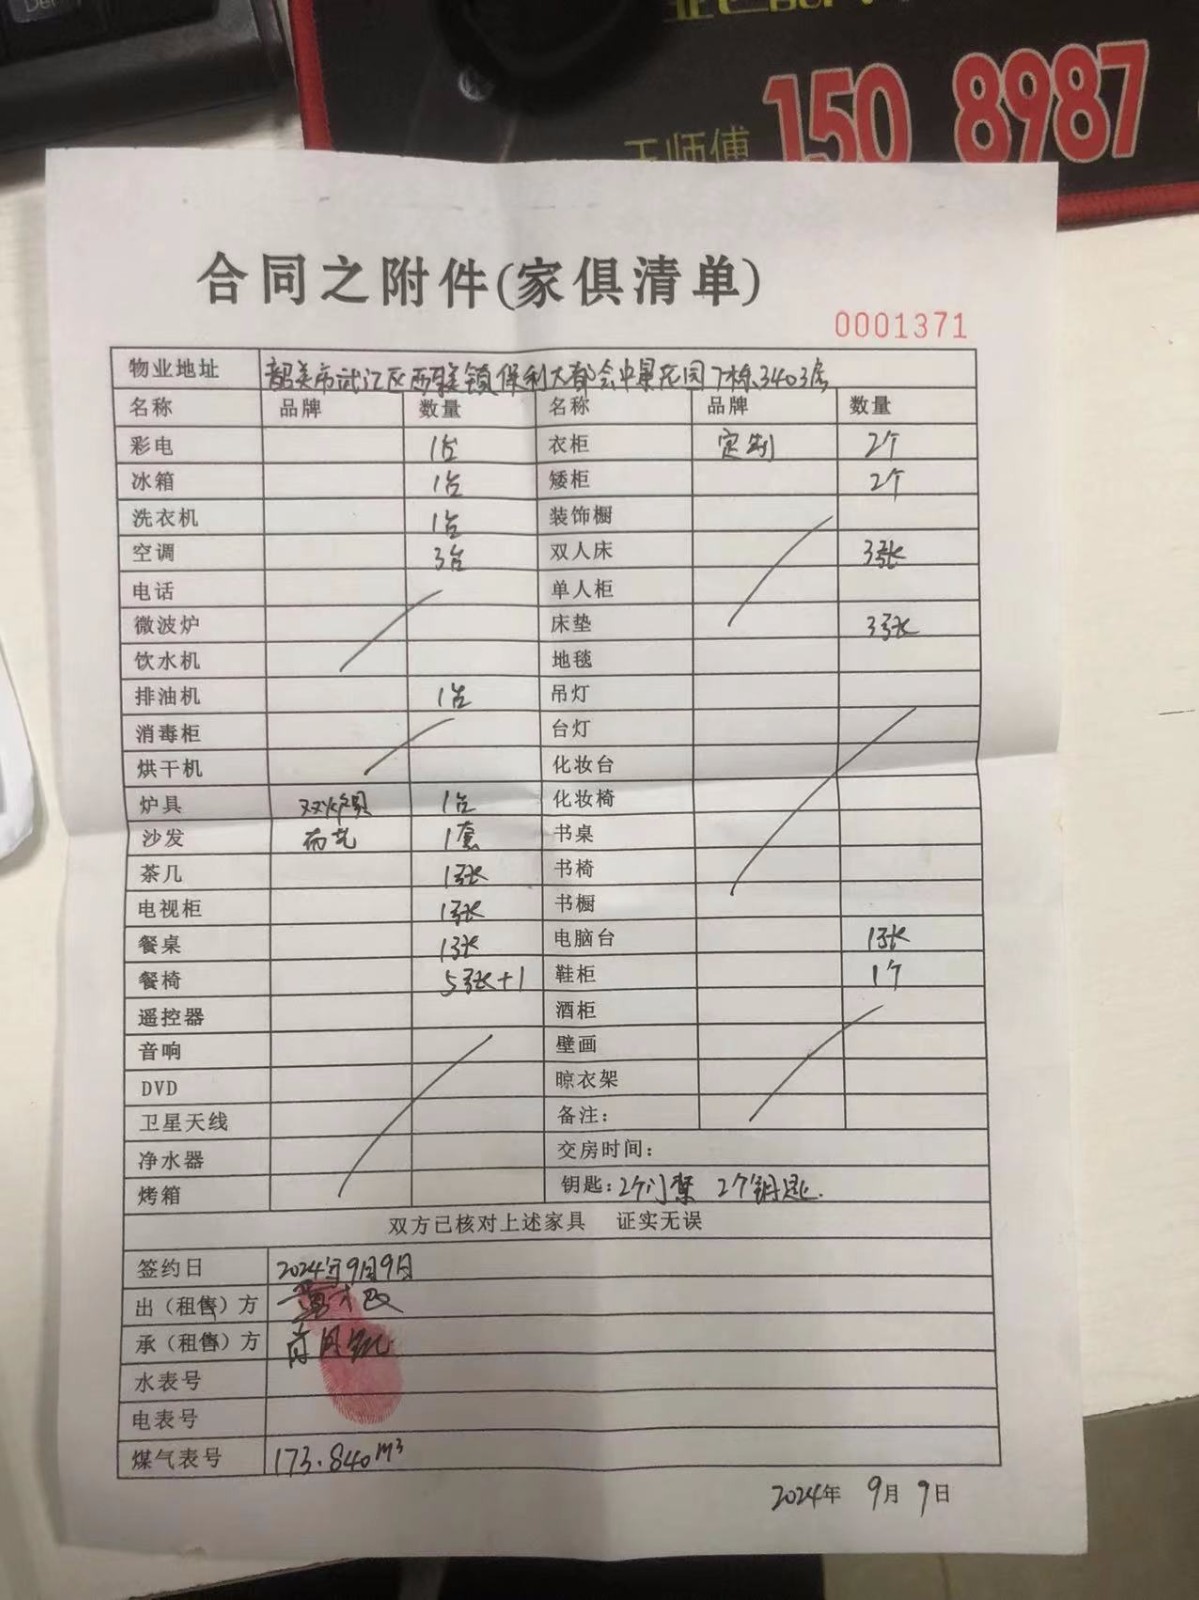 王师傅 150 8987
合同之附件(家俱清单)
0001371
物业地址 韶关市武江区西联镇保利大都会中景花园7栋3403房
名称 品牌 数量 名称 品牌 数量
彩电 1台 衣柜 定制 2个
冰箱 1台 矮柜 2个
洗衣机 1台 装饰橱
空调 3台 双人床 3张
电话 单人柜
微波炉 床垫 3张
饮水机 地毯
排油机 1台 吊灯
消毒柜 台灯
烘干机 化妆台
炉具 双炉具 1台 化妆椅
沙发 布艺 1套 书桌
茶几 1张 书椅
电视柜 1张 书橱
餐桌 1张 电脑台 1张
餐椅 5张+1 鞋柜 1个
遥控器 酒柜
音响 壁画
DVD 晾衣架
卫星天线 备注：
净水器 交房时间：
烤箱 钥匙：2个门禁 2个钥匙.
双方已核对上述家具 证实无误
签约日 2024年9月9日
出（租售）方
承（租售）方
水表号
电表号
煤气表号 173.840m³
2024年 9月 9日